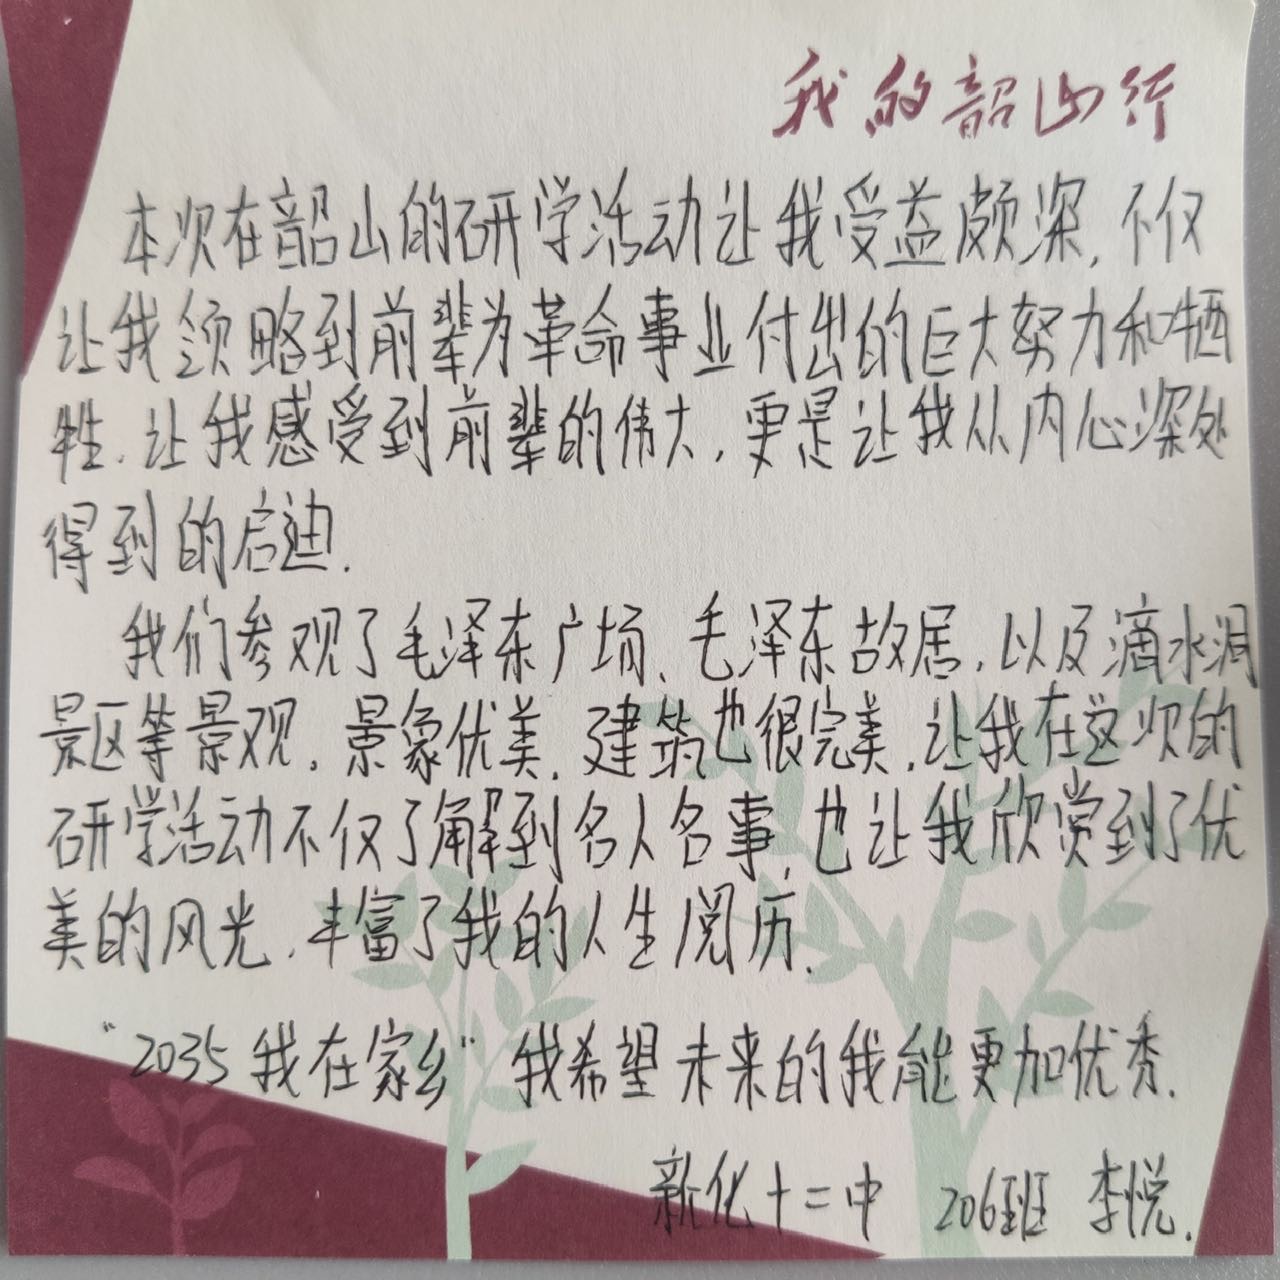 我的韶山行
本次在韶山的研学活动让我受益颇深,不仅
让我领略到前辈为革命事业付出的巨大努力和牺
牲,让我感受到前辈的伟大,更是让我从内心深处
得到的启迪.
我们参观了毛泽东广场、毛泽东故居,以及滴水洞
景区等景观,景象优美,建筑也很完美,让我在这次的
研学活动不仅了解到名人名事,也让我欣赏到了优
美的风光,丰富了我的人生阅历.
“2035我在家乡”我希望未来的我能更加优秀.
新化十二中 206班 李悦.